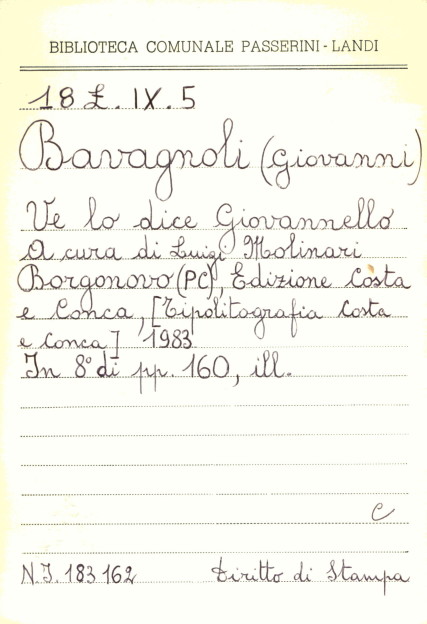 BIBLIOTECA COMUNALE PASSERINI - LANDI
18 £. IX. 5
Bavagnoli (Giovanni)
Ve lo dice Giovannello
A cura di Luigi Molinari
Borgonovo (PC), Edizione Costa
e Conca, [Tipolitografia Costa
e Conca] 1983
In 8° di pp. 160, ill.
C
N.I. 183162 Diritto di Stampa